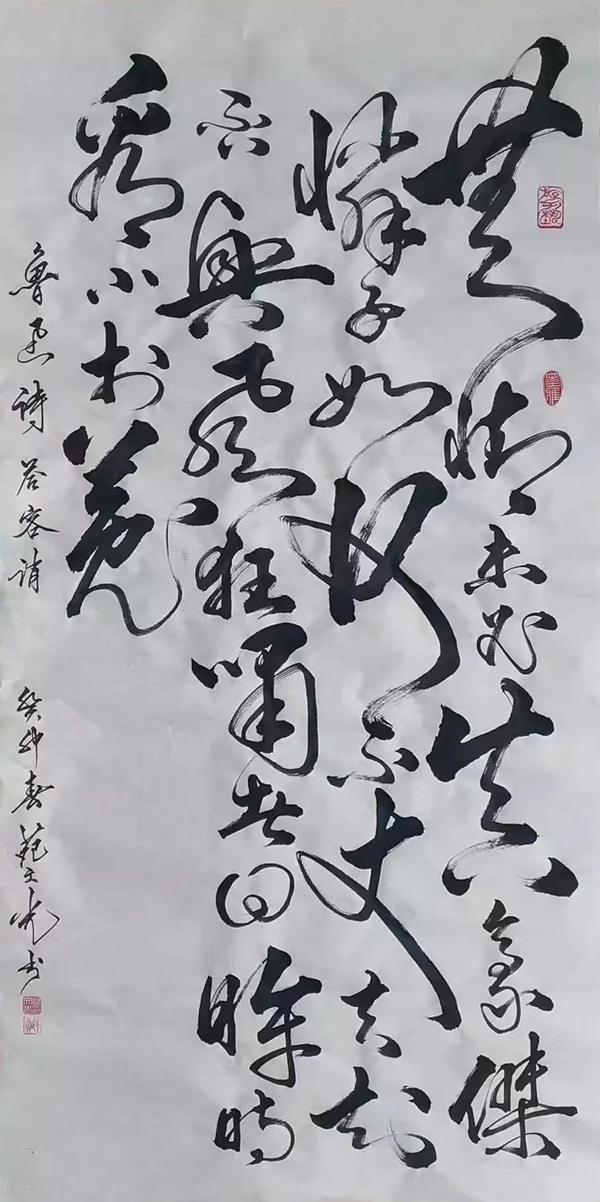 無情未必真豪傑
憐子如何不丈夫知
否興風狂嘯者回眸時
看小扵菟
魯迅詩答客誚 癸卯春范光书